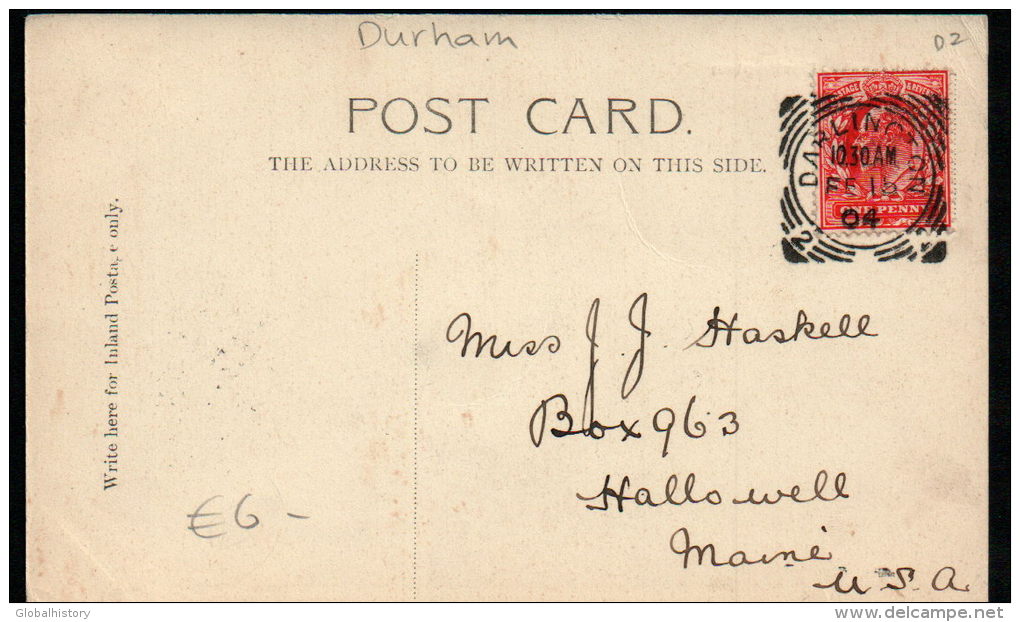 Durham
D2
POST CARD.
THE ADDRESS TO BE WRITTEN ON THIS SIDE.
POSTAGE & REVENUE
DARLINGTON
10.30AM
FE 15
04
2
ONE PENNY
Write here for Inland Postage only.
Miss J. J. Haskell
Box 963
Hallowell
Maine
U.S.A.
€6-
Globalhistory
delcampe.net